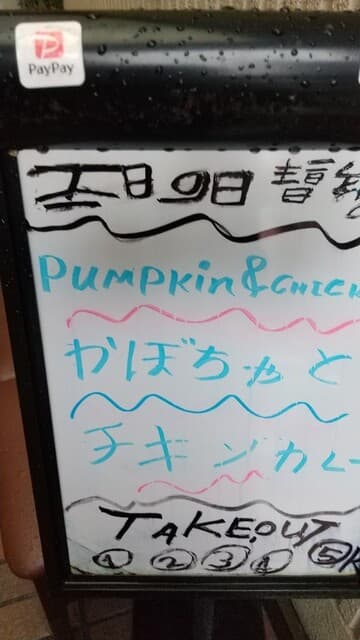 PayPay
日の日
PUMPKin & CHICK
かぼちゃと
チキンカレー
TAKEOUT
① ② ③ ④ ⑤